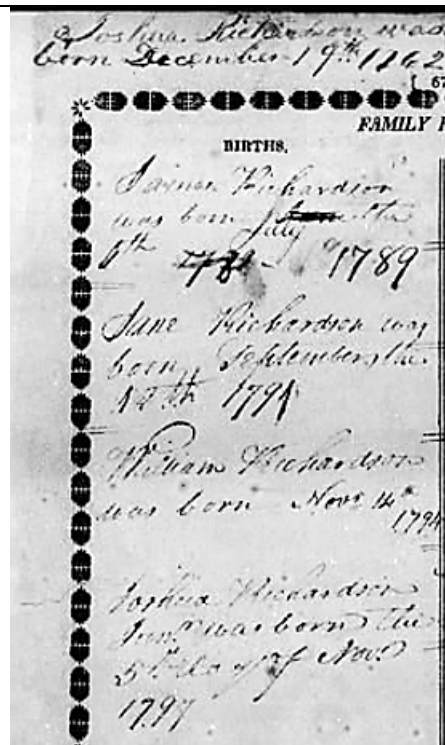 Joshua Richardson was
born December 19th 1762
67
FAMILY
BIRTHS.
James Richardson
was born July the
6th 1789
Jane Richardson was
born September the
1791
William Richardson
was born Novr 14th
1794
Joshua Richardson
Junr was born the
5th day of Novr
1797